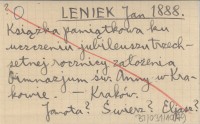 ?O LENIEK Jan 1888.
Książka pamiątkowa ku
uczczeniu jubileuszu trzech-
setnej rocznicy założenia
Gimnazjum św. Anny w Kra-
kowie. — Kraków.
Janota? Świerz? Eljasz?